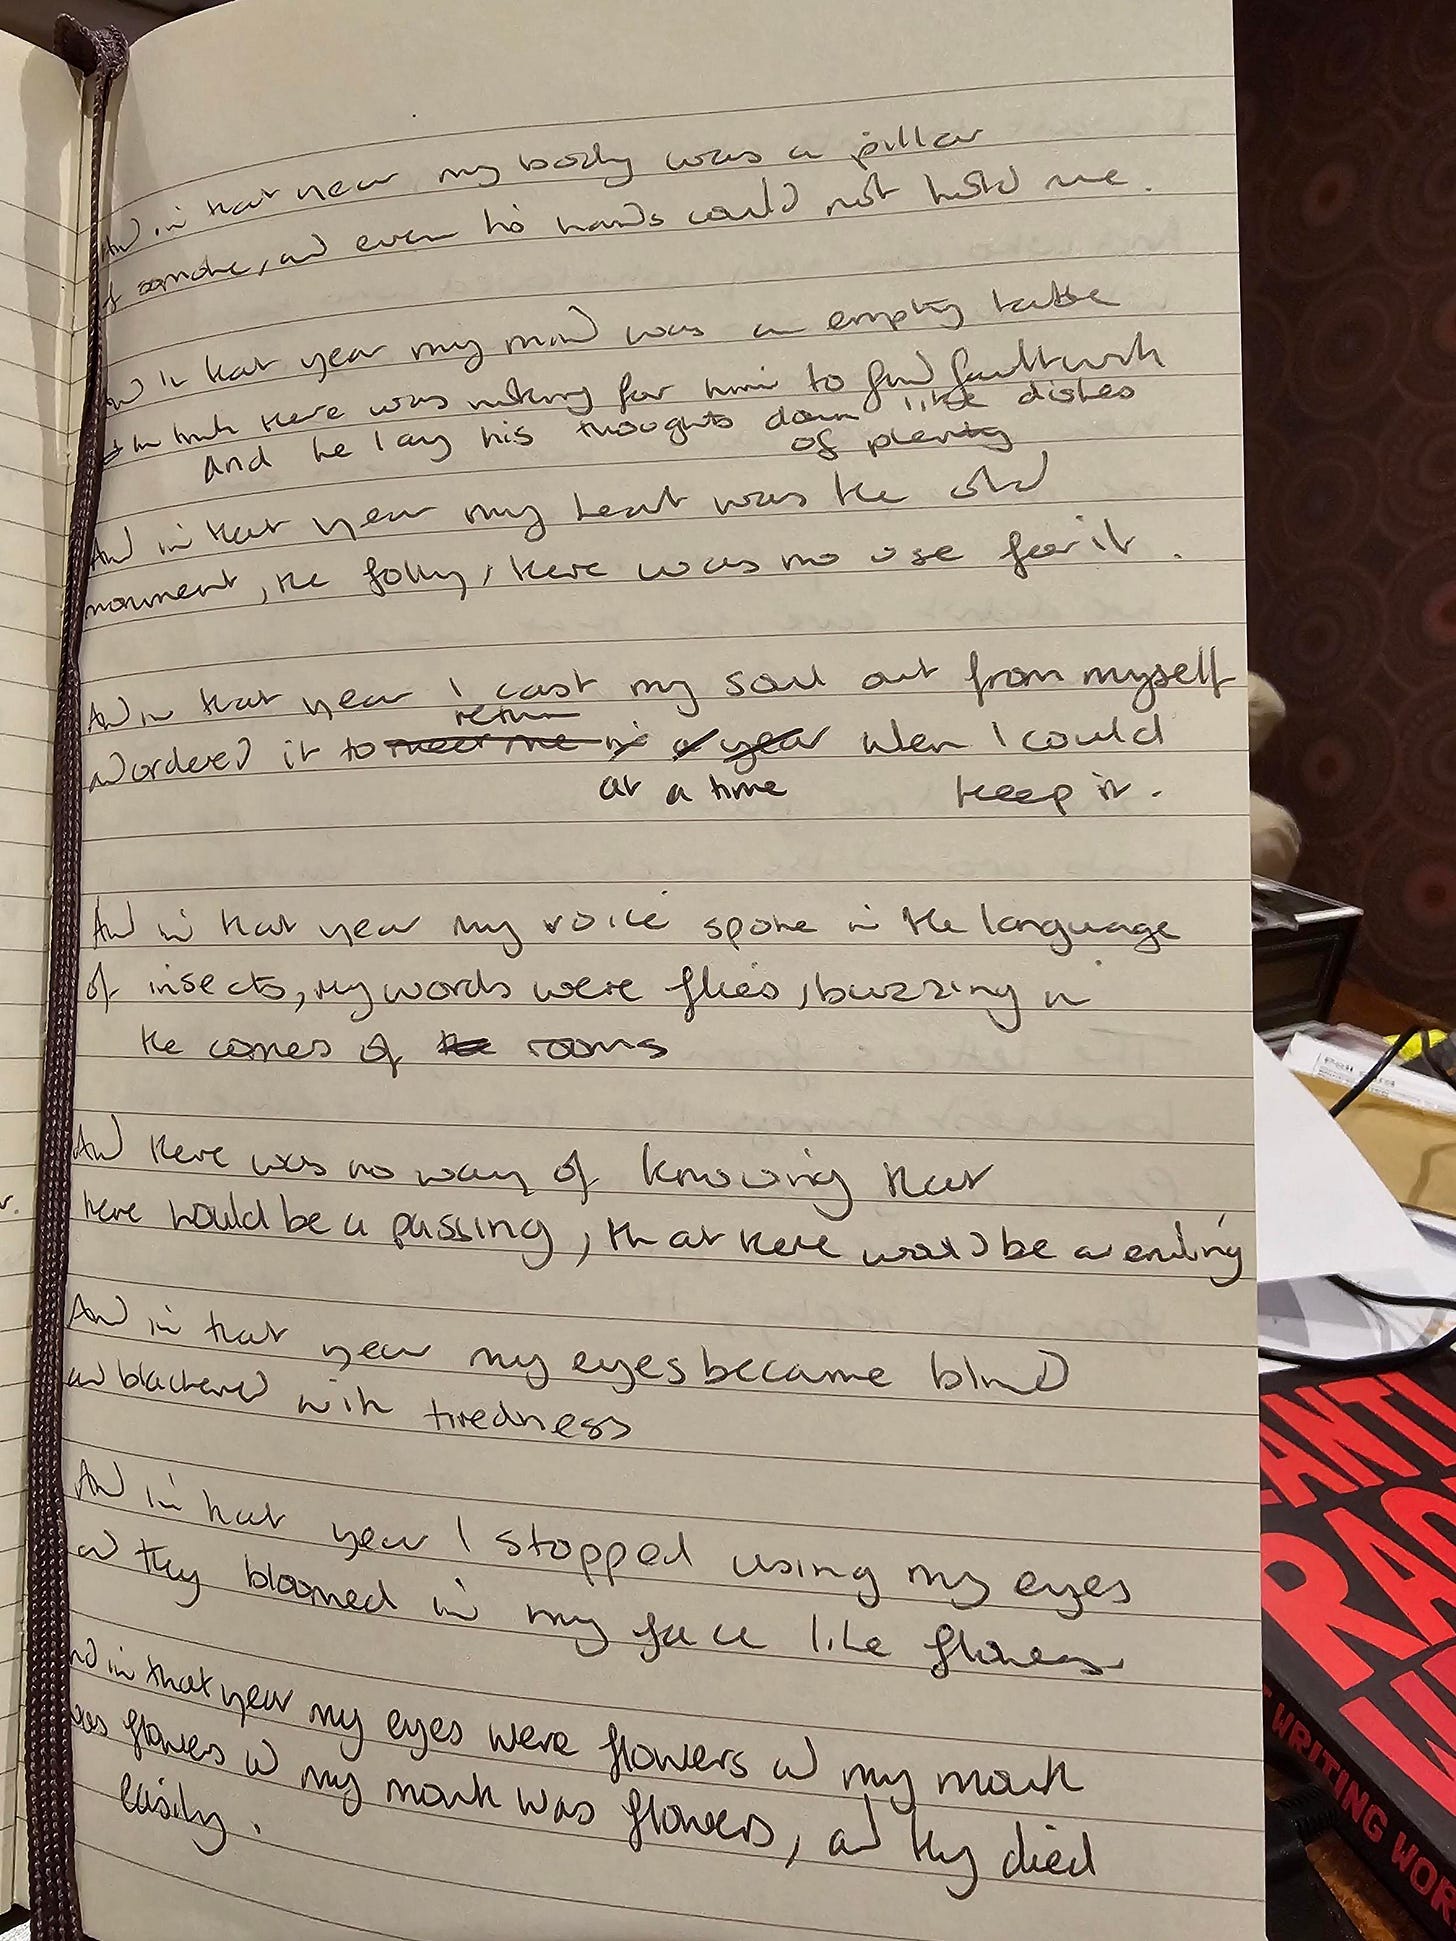 And in that year my body was a pillar
of smoke, and even his hands could not hold me.
And in that year my mind was an empty table
and he lay his thoughts down like dishes
of plenty
And in that year my heart was the old
monument, the folly, there was no use for it.
And in that year I cast my soul out from myself
and ordered it to return when I could
at a time keep it.
And in that year my voice spoke in the language
of insects, my words were flies, buzzing in
the corners of the rooms
And there was no way of knowing that
there would be a passing, that there would be an ending
And in that year my eyes became blind
and blackened with tiredness
And in that year I stopped using my eyes
and they bloomed in my face like flowers
And in that year my eyes were flowers and my mouth
was flowers and my mouth was flowers, and they died
easily.
ANTI
RAC
WRITING WOR